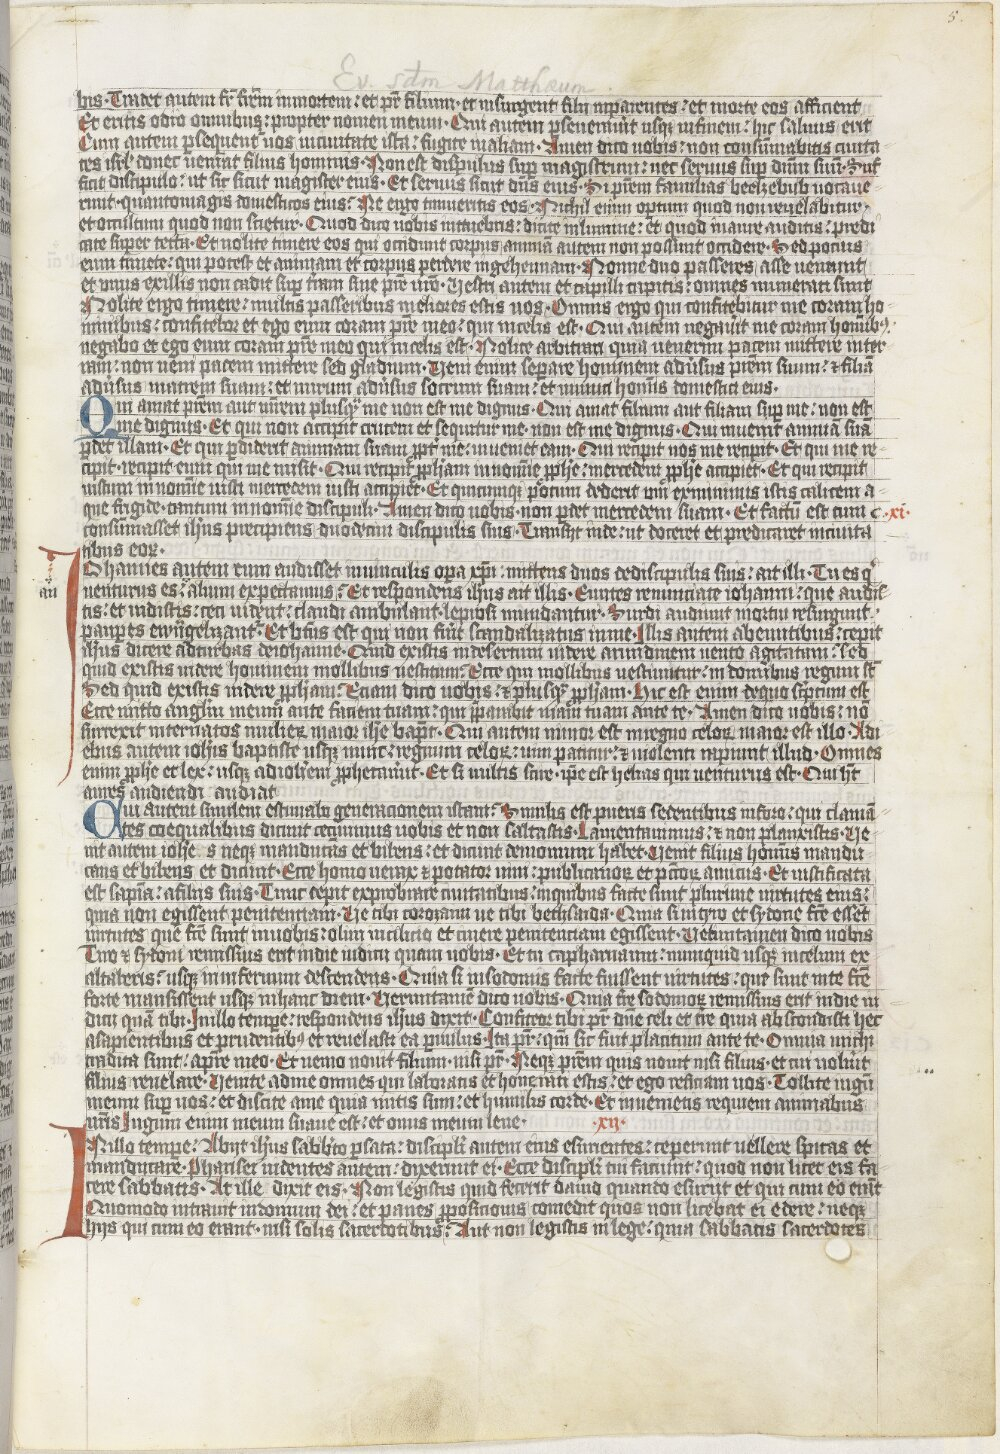 5.
Ev. sdm Matthæum.
bis· Tradet autem fr̄ frēm in mortem: et pr̄ filium· et insurgent filii in parentes: et morte eos afficient
Et eritis odio omnibus: propter nomen meum· Qui autem pseueraūit usqȝ in finem: hic saluus erit
Cum autem psequent̄ uos in ciuitate ista: fugite in aliam· Amen dico uobis: non consūmabitis ciuita
tes isrl̄ donec ueniat filius hominis· Non est discipulus sup magistrum: nec seruus sup dn̄m suū· Suf
ficit discipulo: ut sit sicut magister eius· Et seruus sicut dn̄s eius· Si prēm familias beelzebub uocaue
runt· quantomagis domesticos eius: Ne ergo timueritis eos· Nichil enim optum quod non reuelabitur·
et occultum quod non scietur· Quod dico uobis in tenebris: dicite in lumine: et quod in aure auditis: predi
cate super tecta· Et nolite timere eos qui occidunt corpus animā autem non possunt occidere· Sed pocius
eum timete: qui potest et animam et corpus perdere in gehennam· Nonne duo passeres asse ueniunt
et unus ex illis non cadit sup terram sine prē uro· Uestri autem et capilli capitis: omnes numerati sunt
Nolite ergo timere: multis passeribus meliores estis uos· Omnis ergo qui confitebitur me coram ho
minibus: confitebor et ego eum coram prē meo: qui in celis est· Qui autem negaūit me coram hominibȝ·
negabo et ego eum coram prē meo qui in celis est· Nolite arbitrari quia uenerim pacem mittere in ter
ram: non ueni pacem mittere sed gladium· Ueni enim separe hominem adūsus prēm suum: et filiā
adūsus matrem suam: et nurum adūsus socrum suam: et inimici hominis domestici eius·
Qui amat prēm aut mrēm plusqȝ me non est me dignus· Qui amat filium aut filiam sup me: non est
me dignus· Et qui non accipit crucem et sequitur me· non est me dignus· Qui inuenit animā suā
pdet illam· Et qui pdiderit animam suam ppt me: inueniet eam· Qui recipit uos me recipit· Et qui me re
cipit· recipit eum qui me misit· Qui recipit pph̄am in nomīe pph̄e: mercedem pph̄e accipiet· Et qui recipit
iustum in nomīe iusti mercedem iusti accipiet· Et quicumqȝ potum dederit uni ex minimis istis calicem a
que frigide· tantum in nomīe discipuli· Amen dico uobis· non pdet mercedem suam· Et factū est cum c·xi·
consūmasset ih̄us precipiens duodecim discipulis suis· Transiit inde: ut doceret et predicaret in ciuita
tibus eoꝝ·
Iohannes autem cum audisset in uinculis opa xp̄i: mittens duos de discipulis suis: ait illi· Tu es qͥ
uenturus es: alium expectamus: Et respondens ih̄us ait illis· Euntes renunciate iohanni: que audis
tis: et uidistis: ceci uident: claudi ambulant· leprosi mundantur· Surdi audiunt mortui resurgunt·
pauperes ewangelizant̄· Et btūs est qui non fūit scandalizatus in me· Illis autem abeuntibus: cepit
ih̄us dicere ad turbas de iohanne· Quid existis in desertum uidere arundinem uento agitatam: Sed
quid existis uidere hominem mollibus uestitum: Ecce qui mollibus uestiuntur: in domibus regum st̄
Sed quid existis uidere pph̄am: Eciam dico uobis: et plusqȝ pph̄am· Hic est enim de quo scriptum est
Ecce mitto angl̄m meum ante faciem tuam: qui pparabit uiam tuam ante te· Amen dico uobis: nō
surrexit inter natos mulieꝝ maior ioh̄e bapt̄· Qui autem minor est in regno celoꝝ maior est illo· A di
ebus autem ioh̄is baptiste usqȝ nunc: regnum celoꝝ: uim patitur: et uiolenti rapiunt illud· Omnes
enim pph̄e et lex: usqȝ ad ioh̄em pphetaūnt· Et si uultis scire· ipe est helias qui uenturus est· Qui ht̄
aures audiendi audiat
Cui autem similem estimabo generacionem istam: Similis est pueris sedentibus in foro: qui clamā
tes coequalibus dicunt cecinimus uobis et non saltastis· Lamentauimus: et non planxistis· Ue
nit autem ioh̄es neqȝ manducans et bibens: et dicunt demonium habet· Uenit filius hominis mandu
cans et bibens et dicunt· Ecce homo uorax et potator uini: publicanoꝝ et pctōꝝ amicus· Et iustificata
est sapīa: a filiis suis· Tunc cepit exprobrare ciuitatibus: in quibus facte sunt plurime uirtutes eius:
quia non egissent penitenciam· Ue tibi corozaim ue tibi bethsaida· Quia si in tyro et sydone fcē essēt
uirtutes que fcē sunt in uobis: olim in cilicio et cinere penitenciam egissent· Uerumtamen dico uobis
Tiro et sydoni remissius erit in die iudicii quam uobis· Et tu capharnaum: numquid usqȝ in celum ex
altaberis: usqȝ in infernum descendens· Quia si in sodomis facte fuissent uirtutes: que sunt in te fcē
forte mansissent usqȝ in hanc diem· Uerumtamē dico uobis· Quia tr̄e sodomoꝝ remissius erit in die iu
dicii quā tibi· In illo tempe: respondens ih̄us dixit· Confiteor tibi pr̄ dn̄e celi et tr̄e quia abscondisti hec
a sapientibus et prudentibȝ et reuelasti ea paruulis· Ita pr̄: qm̄ sic fuit placitum ante te· Omnia michi
tradita sunt: a pr̄e meo· Et nemo nouit filium· nisi pr̄· Neqȝ prēm quis nouit nisi filius· et cui uolūit
filius reuelare· Uenite ad me omnes qui laboratis et honerati estis: et ego reficiam uos· Tollite iugū
meum sup uos: et discite a me quia mitis sum: et humilis corde· Et inuenietis requiem animabus
uris Iugum enim meum suaue est: et onus meum leue· ·xii·
In illo tempe: Abiit ih̄us sabbato p sata: discipli autem eius esurientes: ceperunt uellere spicas et
manducare· Pharisei uidentes autem: dixerunt ei· Ecce discipli tui faciunt: quod non licet eis fa
cere sabbatis· At ille dixit eis· Non legistis quid fecerit dauid quando esuriit et qui cum eo erāt
Quomodo intrauit in domum dei: et panes pposicionis comedit quos non licebat ei edere: neqȝ
hiis qui cum eo erant· nisi solis sacerdotibus: Aut non legistis in lege: quia sabbatis sacerdotes